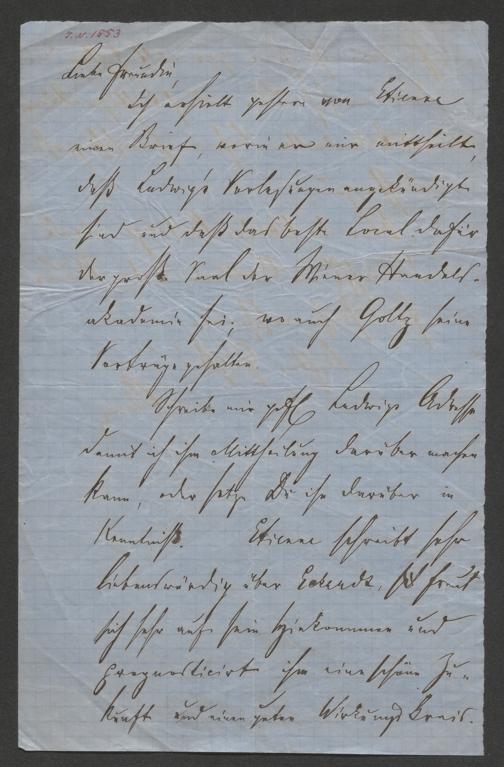 I.N. 1553
Liebe Freundin,
Ich erhielt gestern von Etienne
einen Brief, worin er mir mittheilte,
daß Ludwig's Vorlesungen angekündigt
sind und daß das beste Local dafür
der große Saal der Wiener Handels-
akademie sei, wo auch Goltz seine
Vorträge gehalten.
Schreibe mir gefl Ludwigs Adresse
damit ich ihm Mittheilung darüber machen
kann, oder setze Du ihn darüber in
Kenntniß. Etienne schreibt sehr
liebenswürdig über Eckardt, freut
sich sehr auf sein Hiekommen und
prognosticirt ihm eine schöne Zu-
kunft und einen guten Wirkungskreis.